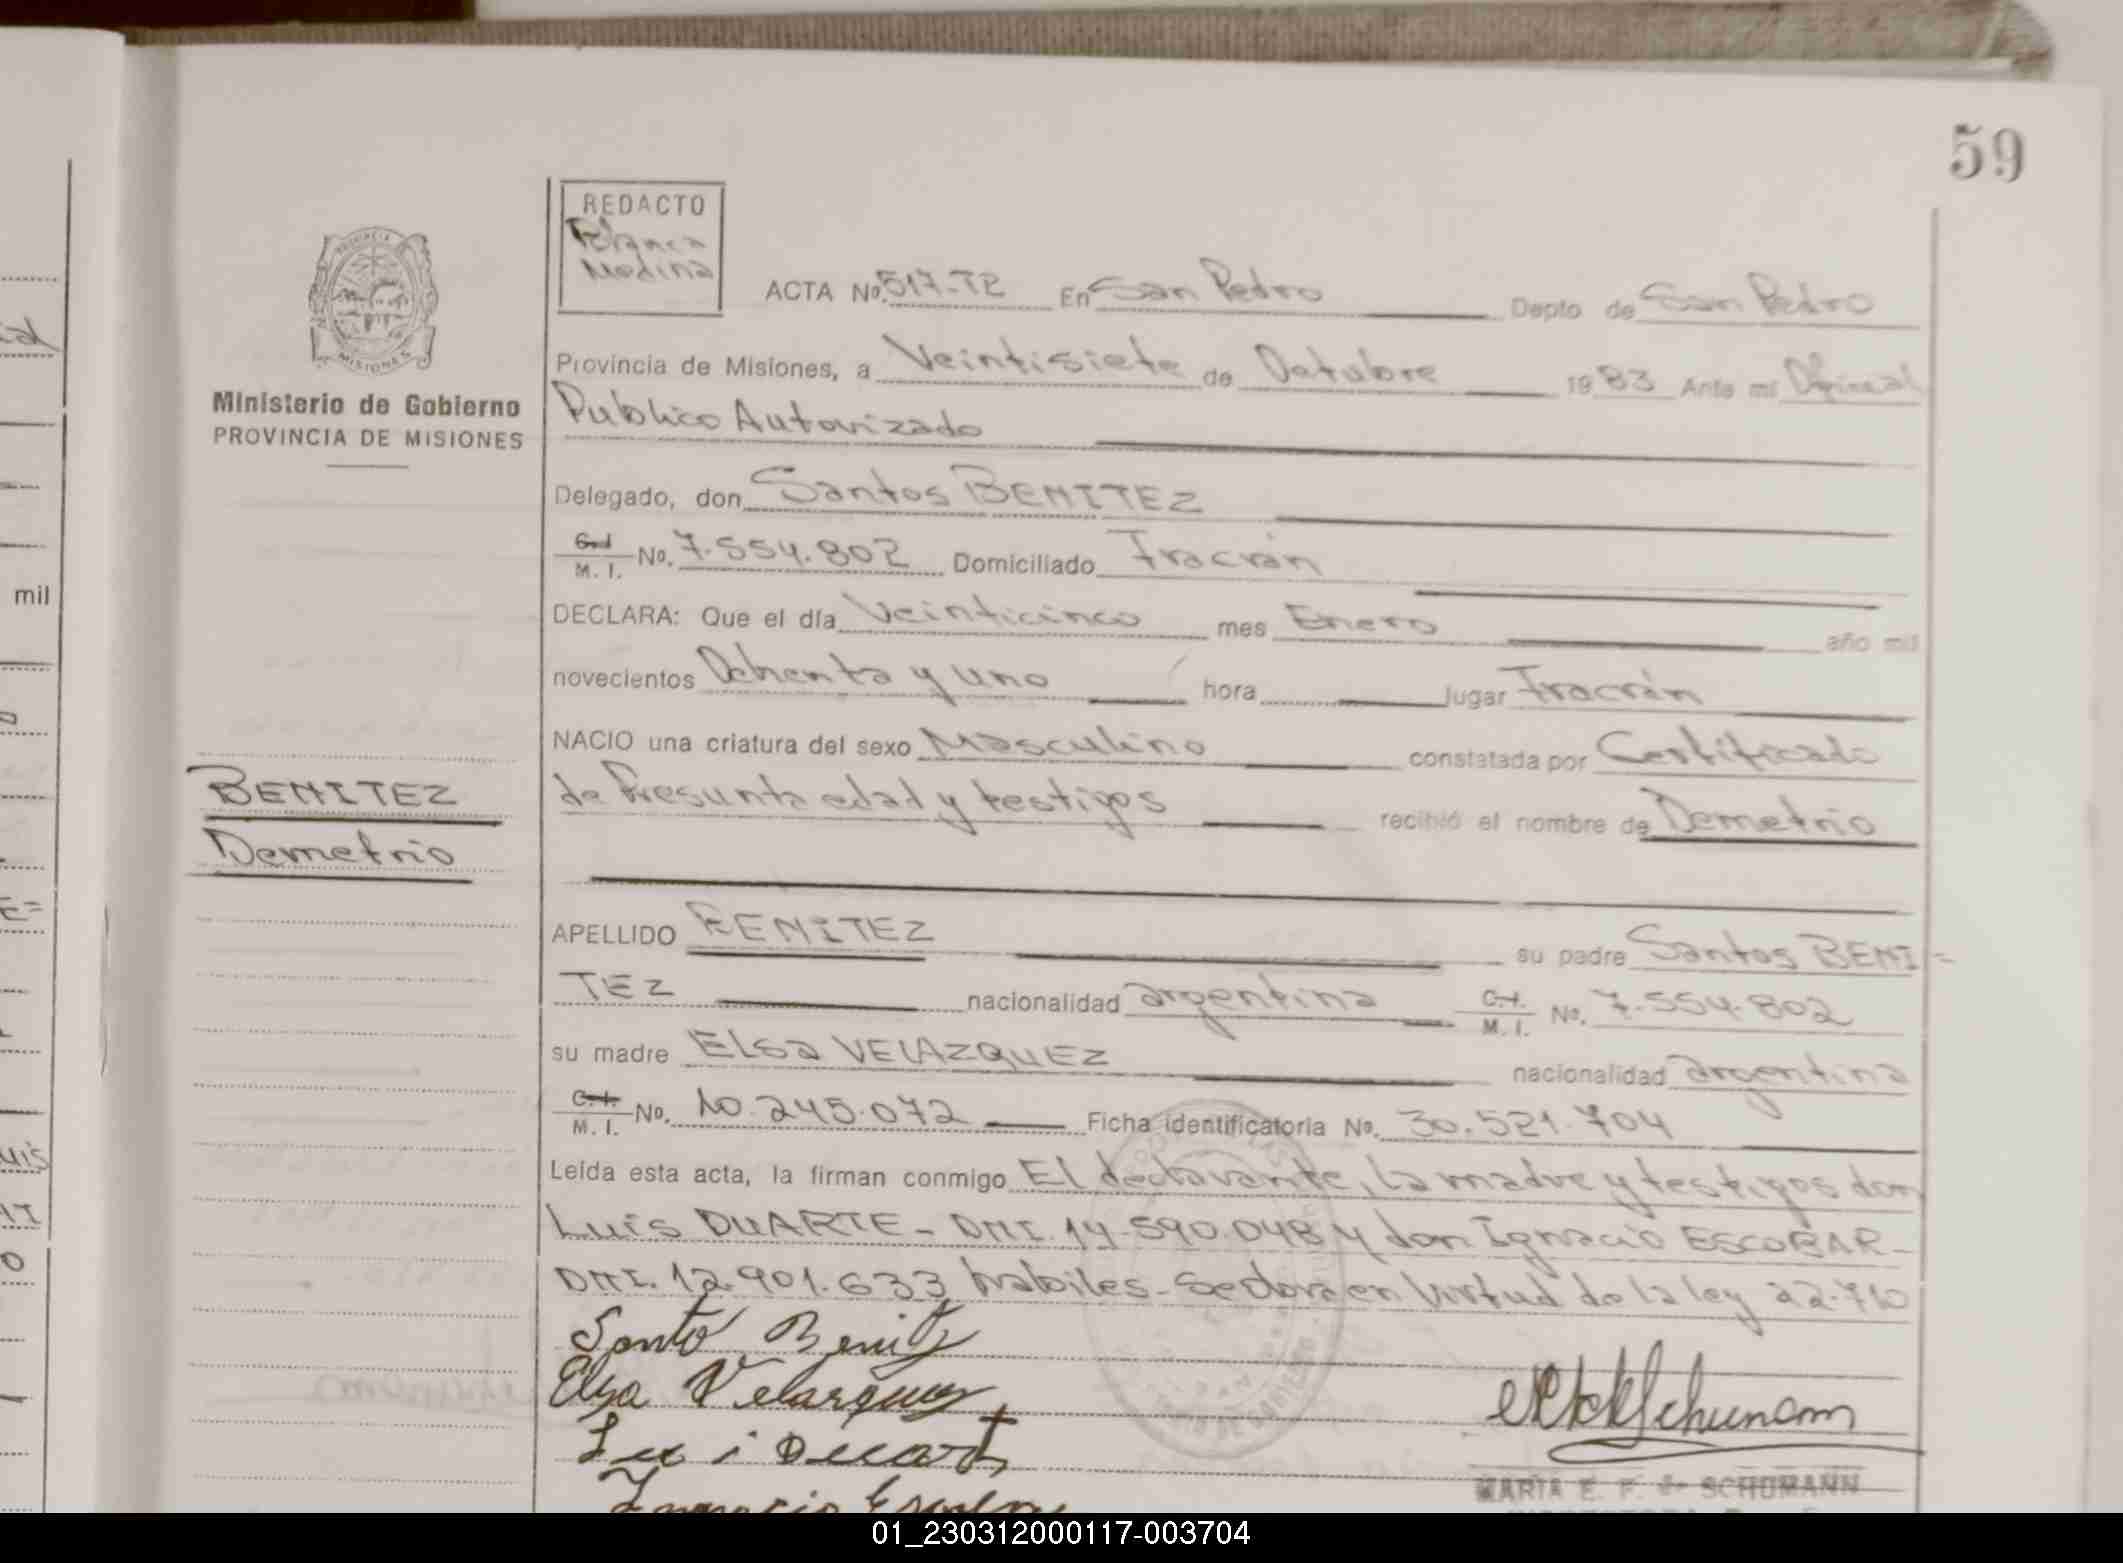 59
REDACTO
Blanca
Medina
PROVINCIA
MISIONES
Ministerio de Gobierno
PROVINCIA DE MISIONES
ACTA No. 517-T2 En San Pedro Depto de San Pedro
Provincia de Misiones, a Veintisiete de Octubre 1983 Ante mi Oficial
Publico Autorizado
Delegado, don Santos BENITEZ
C. I. M. I. No. 7.554.802 Domiciliado Fracrán
DECLARA: Que el día Veinticinco mes Enero año mil
novecientos Ochenta y uno hora lugar Fracrán
NACIO una criatura del sexo Masculino constatada por Certificado
de Presunta edad y testigos recibió el nombre de Demetrio
BENITEZ
Demetrio
APELLIDO BENITEZ su padre Santos BENI=
TEZ nacionalidad argentina C. I. M. I. No. 7.554.802
su madre Elsa VELAZQUEZ nacionalidad argentina
C. I. M. I. No. 10.245.072 Ficha identificatoria No. 30.521.704
Leída esta acta, la firman conmigo El declarante, la madre y testigos don
Luis DUARTE - DNI. 14.590.048 y don Ignacio ESCOBAR-
DNI. 12.901.633 habiles- en Virtud de la ley 22.710
Santo Benitz
Elsa Velazquez
Ignacio
Schumann
MARIA E. F. de SCHUMANN
mil
01_230312000117-003704